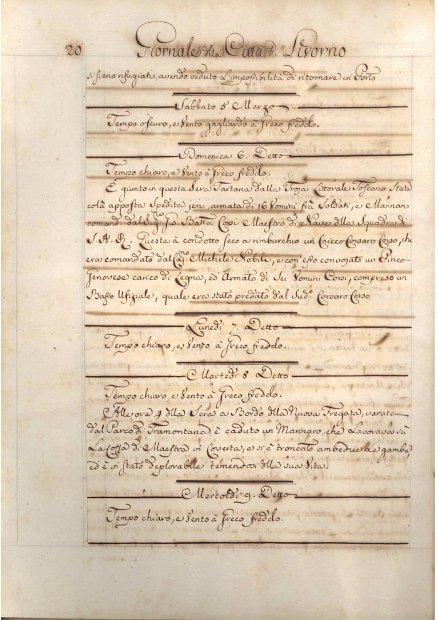 20 Giornale Città di Livorno
si sieno rifugiati, avendo veduto L'impossibilità di ritornare in Porto
Sabbato 5 Marzo
Tempo oscuro, e Vento gagliardo à Greco freddo.
Domenica 6. Detto
Tempo chiaro, e Vento à Greco freddo.
È giunto in questa Sera Tartana dalla Troja Littorale Toscano Stata
colà apposta Spedita, ed armata di 16 Uomini frà Soldati, e Marinari
comand. dal Batta Maestro di Nave della Squadra di
S. A. R. Questa à condotto seco a rimburchio un Caicco Corsaro Corso, che
era comandato dal Michele Nobile, e con esso convojato un Pinco
Genovese carico di Legna, ed Armato di Sei Uomini Corsi, compreso un
Basso Ufiziale, quale era stato predato dal Sud.o Corsaro Corso
Lunedì 7. Detto
Tempo chiaro, e Vento à Greco freddo.
Martedì 8 Detto
Tempo chiaro, e Vento à Greco freddo.
Alle ore 4 della Sera a Bordo della Nuova Fregata, varata
dal Parco di Tramontana è caduto un Mannaro, che Lavorava sù
La Coffa di Maestra in Coverta, e si è troncato ambedue Le gambe
ed è in stato deplorabile temendosi della sua Vita.
Mercoldì 9. Detto
Tempo chiaro, e Vento à Greco freddo.